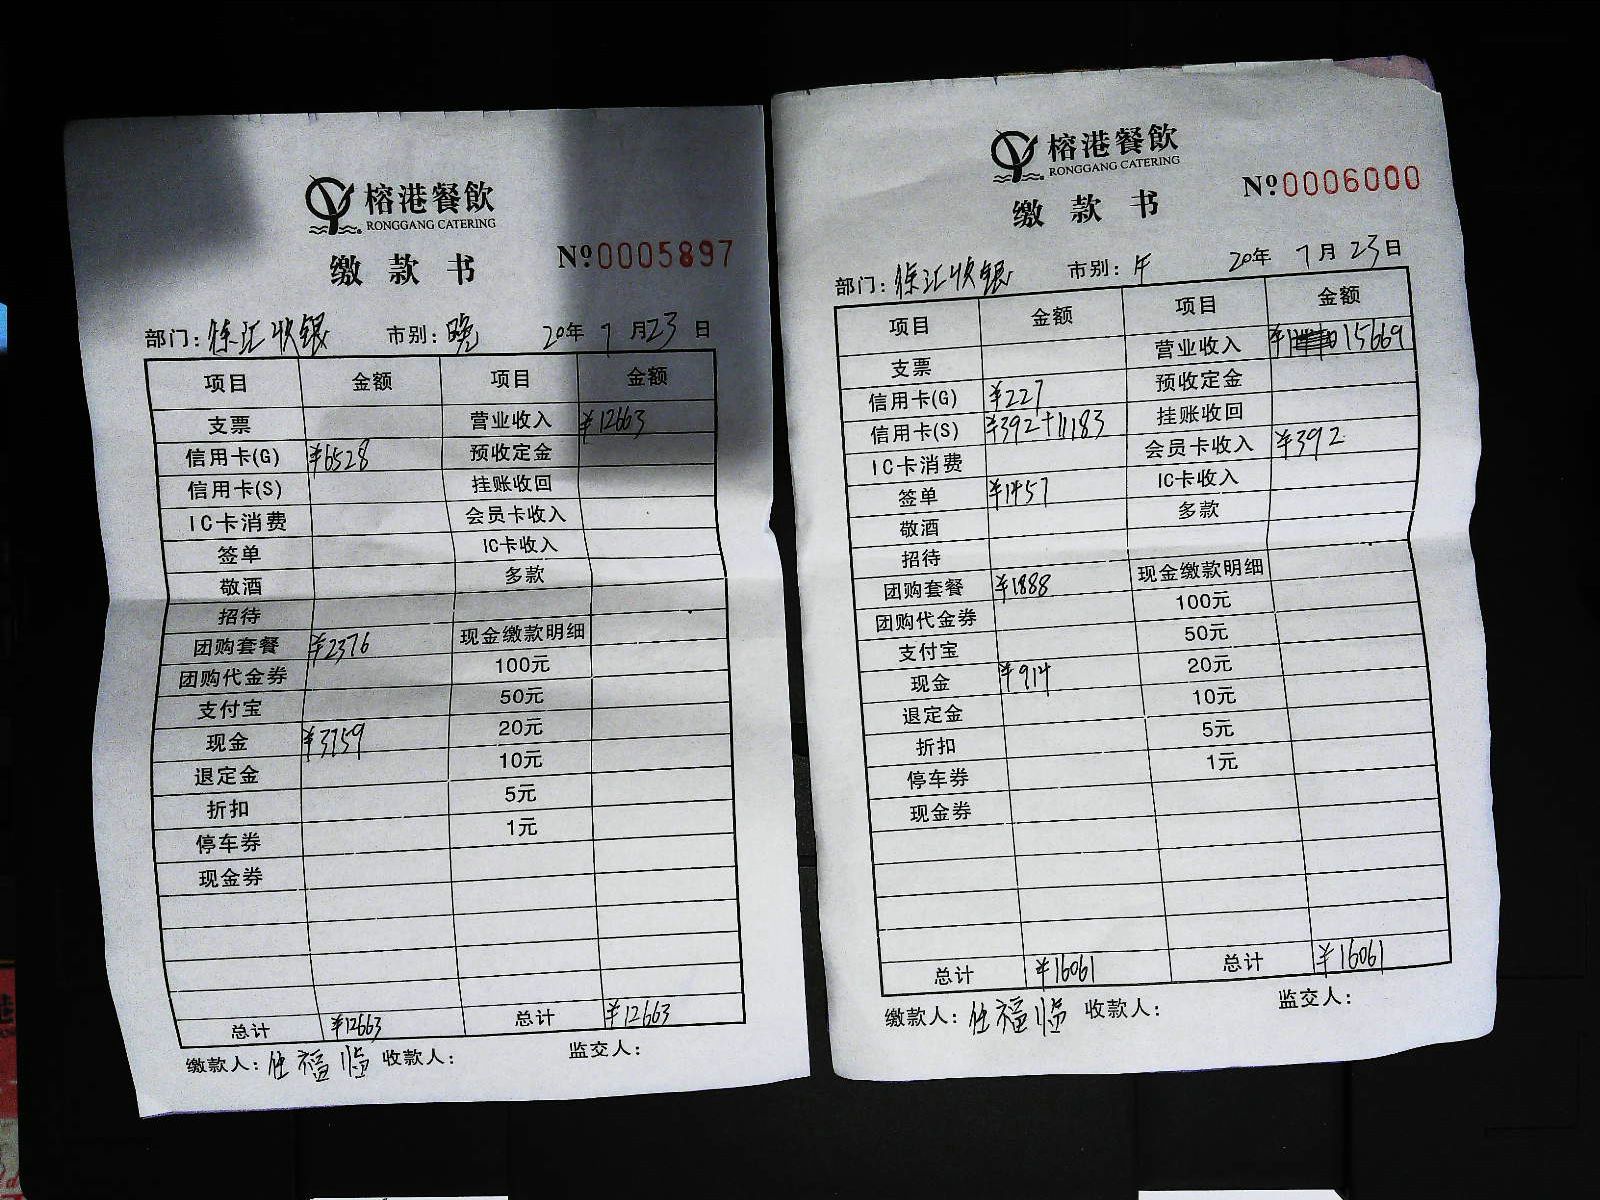 榕港餐飲
RONGGANG CATERING
缴 款 书
№0005897
部门：徐汇收银 市别：晚 20年 7月23日
项目 金额 项目 金额
支票 营业收入 ¥12663
信用卡(G) ¥6528 预收定金
信用卡(S) 挂账收回
IC卡消费 会员卡收入
签单 IC卡收入
敬酒 多款
招待
团购套餐 ¥2376 现金缴款明细
团购代金券 100元
支付宝 50元
现金 ¥3759 20元
退定金 10元
折扣 5元
停车券 1元
现金券
总计 ¥12663 总计 ¥12663
缴款人：任福临 收款人： 监交人：
榕港餐飲
RONGGANG CATERING
缴 款 书
№0006000
部门：徐汇收银 市别：午 20年 7月23日
项目 金额 项目 金额
支票 营业收入 ¥15669
信用卡(G) ¥227 预收定金
信用卡(S) ¥392+11183 挂账收回
IC卡消费 会员卡收入 ¥392
签单 ¥1457 IC卡收入
敬酒 多款
招待
团购套餐 ¥1888 现金缴款明细
团购代金券 100元
支付宝 50元
现金 ¥914 20元
退定金 10元
折扣 5元
停车券 1元
现金券
总计 ¥16061 总计 ¥16061
缴款人：任福临 收款人： 监交人：